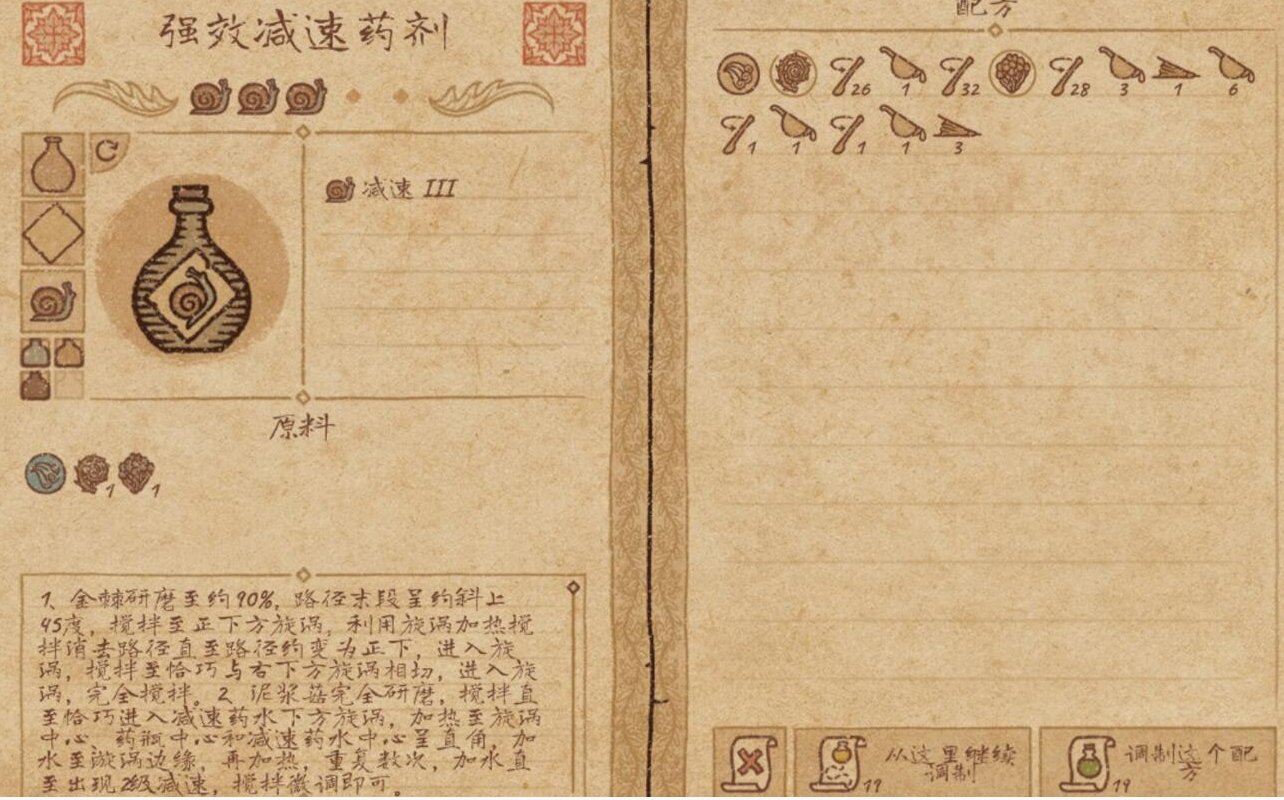 强效减速药剂
减速 III
原料
1 1
1、金棘研磨至约90%，路径末段呈约斜上
45度，搅拌至正下方旋涡，利用旋涡加热搅
拌消去路径直至路径约变为正下，进入旋
涡，搅拌至恰巧与右下方旋涡相切，进入旋
涡，完全搅拌。2、泥浆菇完全研磨，搅拌直
至恰巧进入减速药水下方旋涡，加热至旋涡
中心，药瓶中心和减速药水中心呈直角，加
水至旋涡边缘，再加热，重复数次，加水直
至出现2级减速，搅拌微调即可。
配方
26 1 32 28 3 1 6
1 1 1 1 3
从这里继续
调制
19
调制这个配
方
19